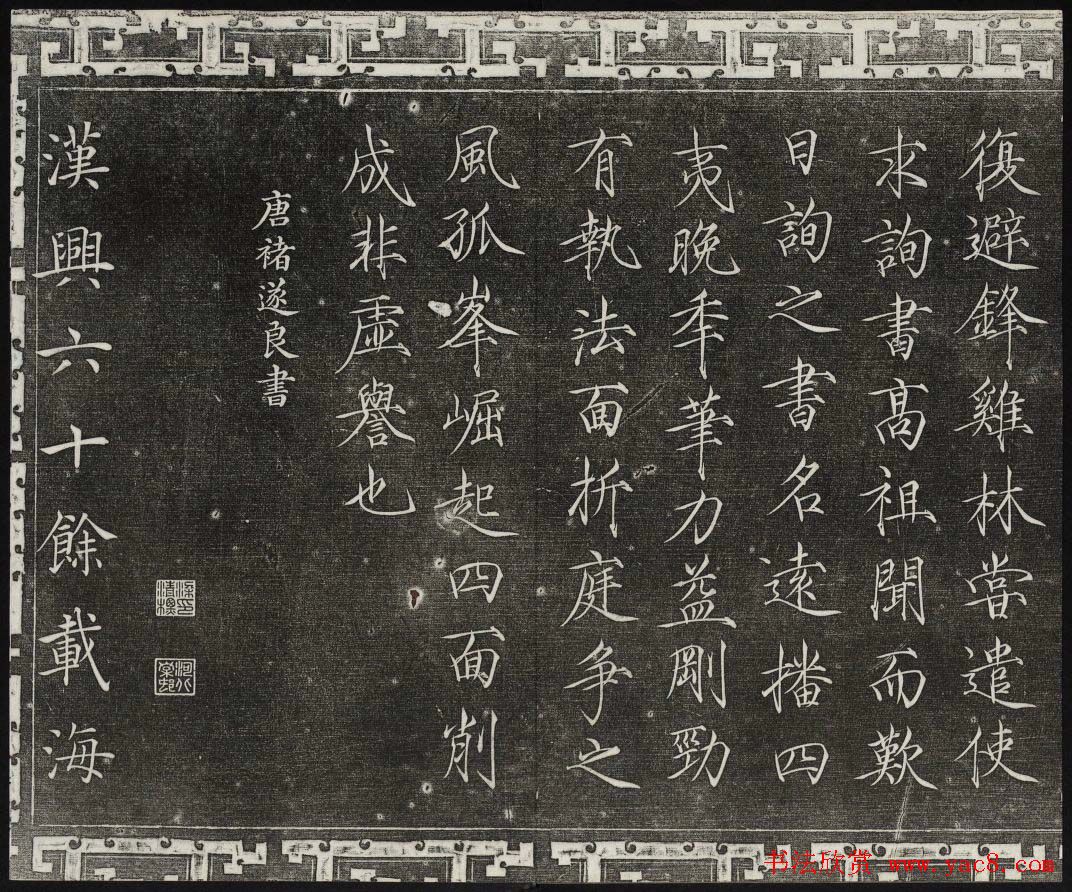 復避鋒雞林嘗遣使
求詢書高祖聞而歎
曰詢之書名遠播四
夷晚年筆力益剛勁
有執法面折庭争之
風孤峯崛起四面削
成非虛譽也
唐褚遂良書
漢興六十餘載海
书法欣赏 www.yac8.com